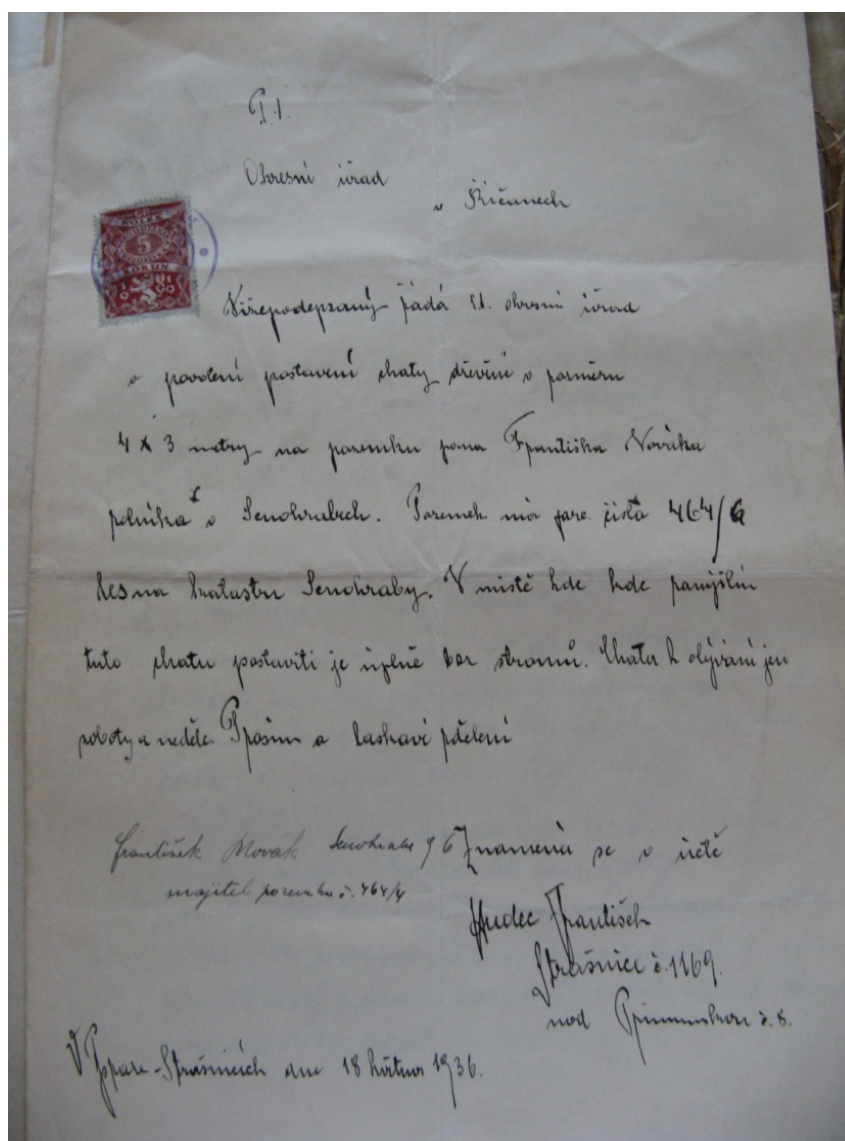 P.t.
Okresní úřad
v Říčanech
KOLEK
5
KORUN
1919
Nížepodepsaný žádá sl. okresní úřad
o povolení postavení chaty dřevěné o poměru
4 x 3 metry na pozemku pana Františka Nováka
rolníka v Senohrabech. Pozemek má parc. číslo 464/6
les na katastru Senohraby. V místě kde hode pamýšlím
tuto chatu postaviti je úplně bez stromů. Chata k obývání jen
soboty a neděle. Prosím o laskavé sdělení
František Novák Senohraby 96
majitel pozemku č. 464/4
Znamenám se v úctě
Hudec František
Strašnice č. 1169.
nad Primaskou č. 8.
V Praze-Strašnicích dne 18 května 1936.